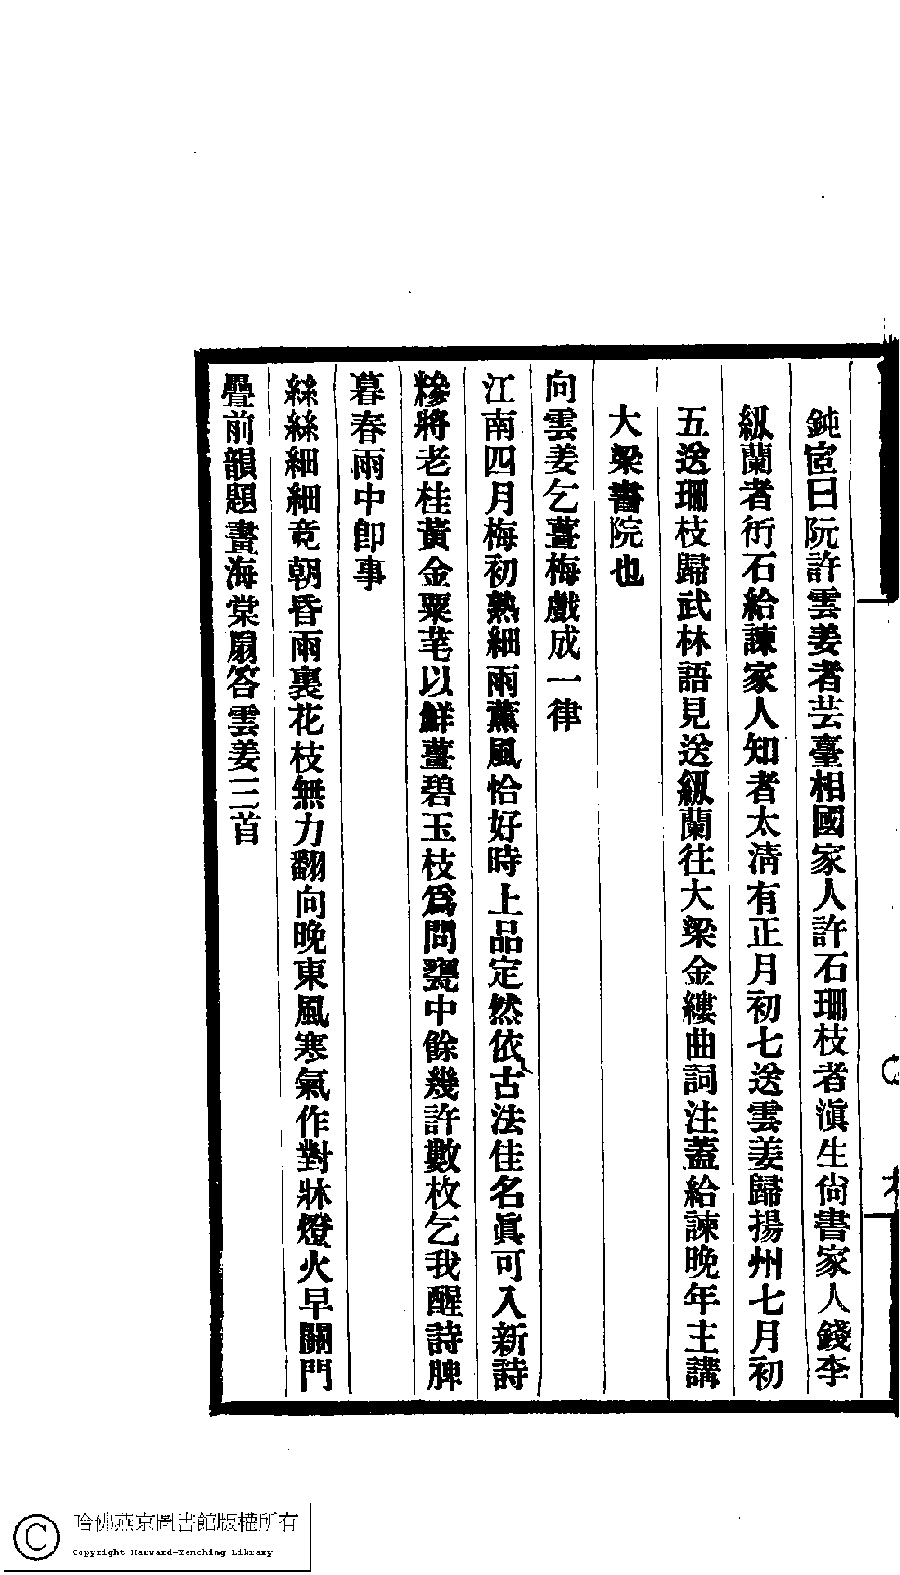 鈍宧曰阮許雲姜者芸臺相國家人許石珊枝者滇生尙書家人錢李
紉蘭者衎石給諫家人知者太淸有正月初七送雲姜歸揚州七月初
五送珊枝歸武林語見送紉蘭往大梁金縷曲詞注蓋給諫晚年主講
大梁書院也
向雲姜乞薑梅戲成一律
江南四月梅初熟細雨薰風恰好時上品定然依古法佳名眞可入新詩
糝將老桂黃金粟芼以鮮薑碧玉枝爲問甕中餘幾許數枚乞我醒詩脾
暮春雨中卽事
絲絲細細竟朝昏雨裏花枝無力翻向晚東風寒氣作對牀燈火早關門
疊前韻題畫海棠扇答雲姜三首
哈佛燕京圖書館版權所有
Copyright Harvard-Yenching Library